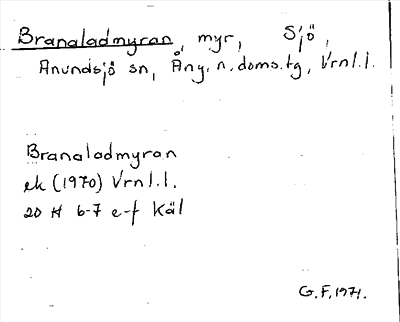 Branaladmyran, myr, Sjö,
Anundsjö sn, Ång. n. doms.tg, Vrnl.l.
Branaladmyran
ek (1970) Vrnl.l.
20 H 6-7 e-f Käl
G.F. 1971.